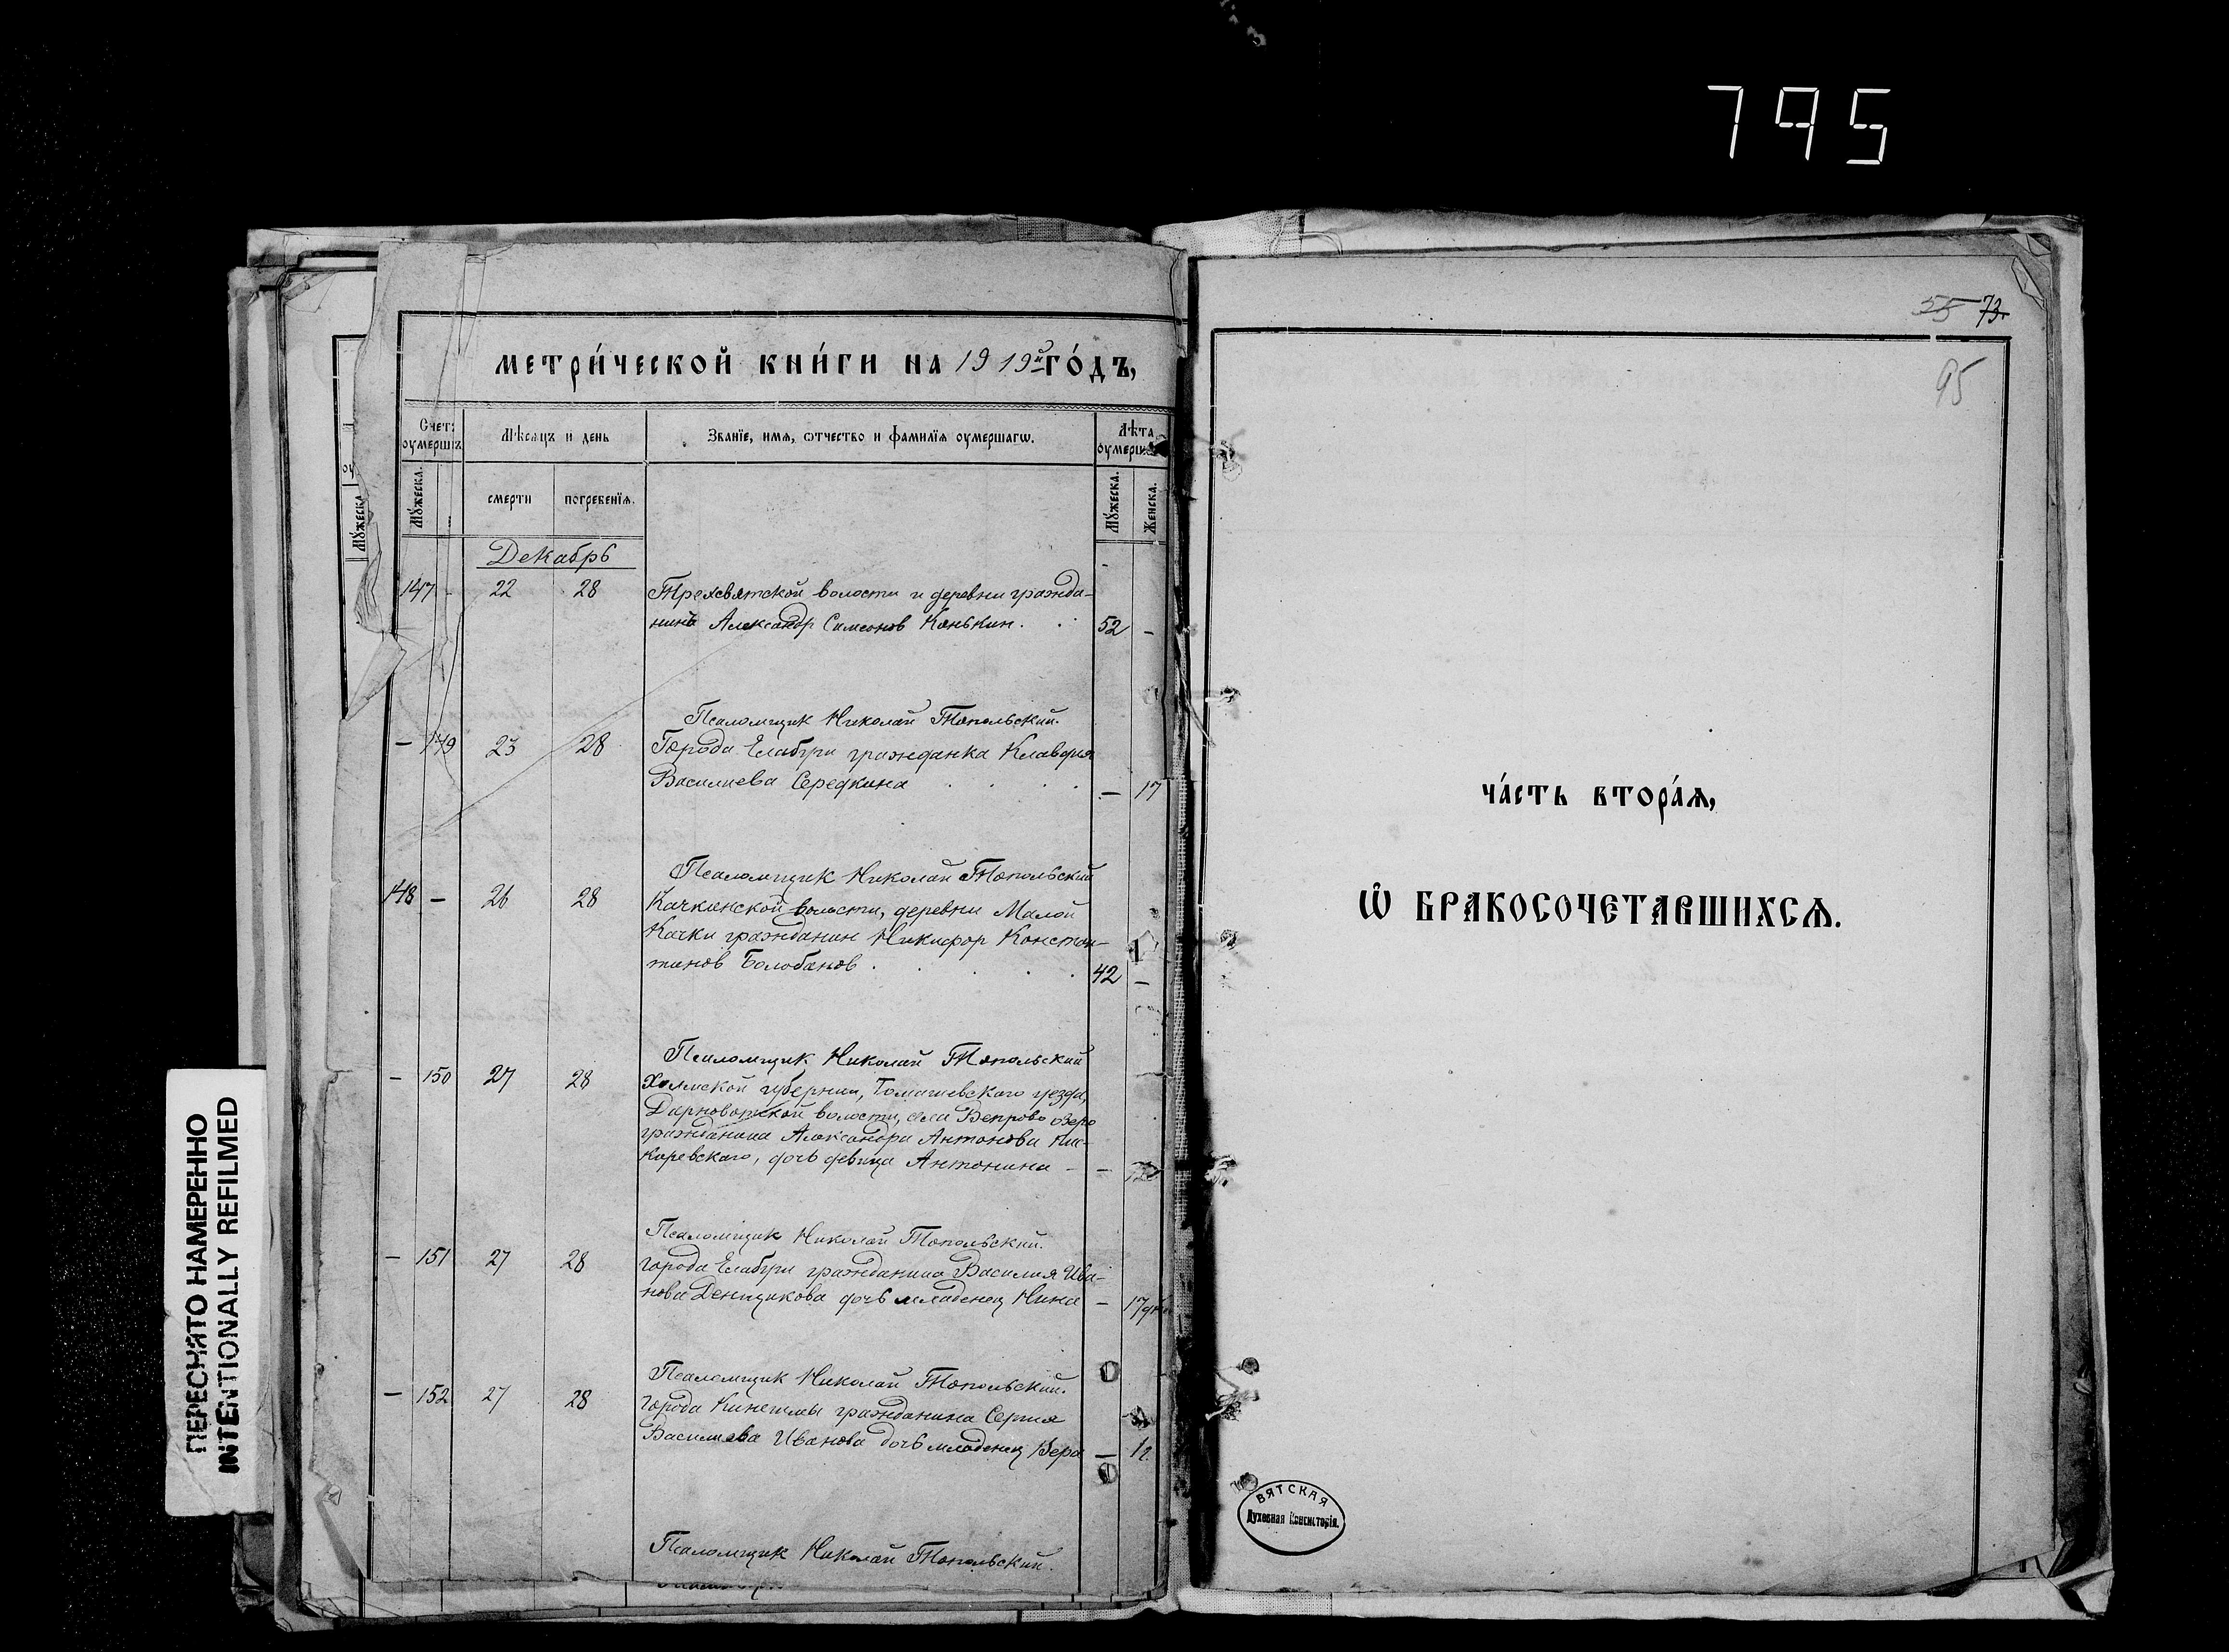 795
метри́ческой кни́ги на 1919й го́дъ,
Счет: оумерши Мѣсяцъ и день Званїе, имѧ, ѿтчество и фамилїѧ оумершагѡ. Лѣта
Мꙋжеска. смерти погребенїѧ. Мꙋжеска. Женска.
Мꙋжеска
Декабрь
147 - 22 28 Трехсвятской волости и деревни гражда-
нинъ Александр Симеонов Конькин. 52 -
Псаломщик Николай Топольский.
- 149 23 28 Города Елабуги гражданка Клавдия
Василиева Середкина - 17
Псаломщик Николай Топольский
148 - 26 28 Качкинской волости, деревни Малой
Качки гражданин Никифор Констан-
тинов Болобанов 42 -
Псаломщик Николай Топольский
- 150 27 28 Холмской губернии, Томашевского уезда,
волости, села Вепрово озеро
гражданина Александра Антонова
дочь девица Антонина - -
Псаломщик Николай Топольский.
- 151 27 28 города Елабуги гражданина Василия Ива-
нова Денщикова дочь младенец Нина - 17
Псаломщик Николай Топольский.
- 152 27 28 города Кинешмы гражданина Сергия
Василиева Иванова дочь младенец Вера - 1 г.
Псаломщик Николай Топольский.
55 73.
95
ча́сть втора́ѧ,
Ѡ БРАКОСОЧЕТАВШИХСѦ.
ВЯТСКАЯ
Духовная Консисторія.
ПЕРЕСНЯТО НАМЕРЕННО
INTENTIONALLY REFILMED